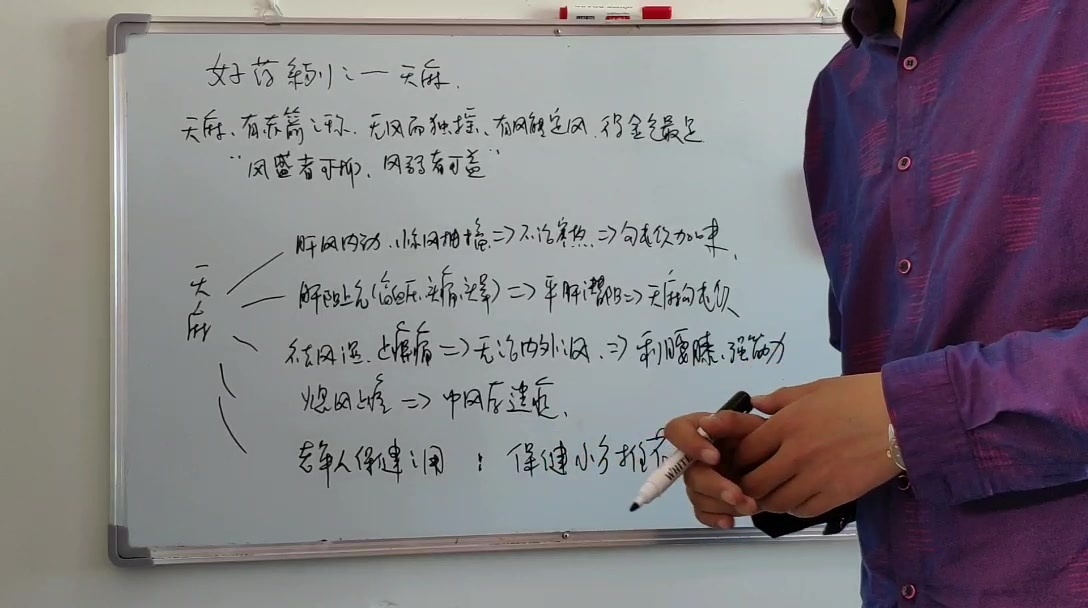 好药系列之一天麻.
天麻、有赤箭之称.无风而独摇、有风能定风.
"风盛者可抑、风弱者可益"
天麻
肝风内动、小儿风抽搐=>不论寒热=>勾芪饮加味、
肝阳上亢(高血压、头痛、头晕)=>平肝潜阳=>天麻勾芪饮
祛风湿、止痹痛=>无论内外之风、=>利腰膝、强筋力
熄风止痉=>中风后遗症、
老年人保健之用:保健小方推荐
WHITE